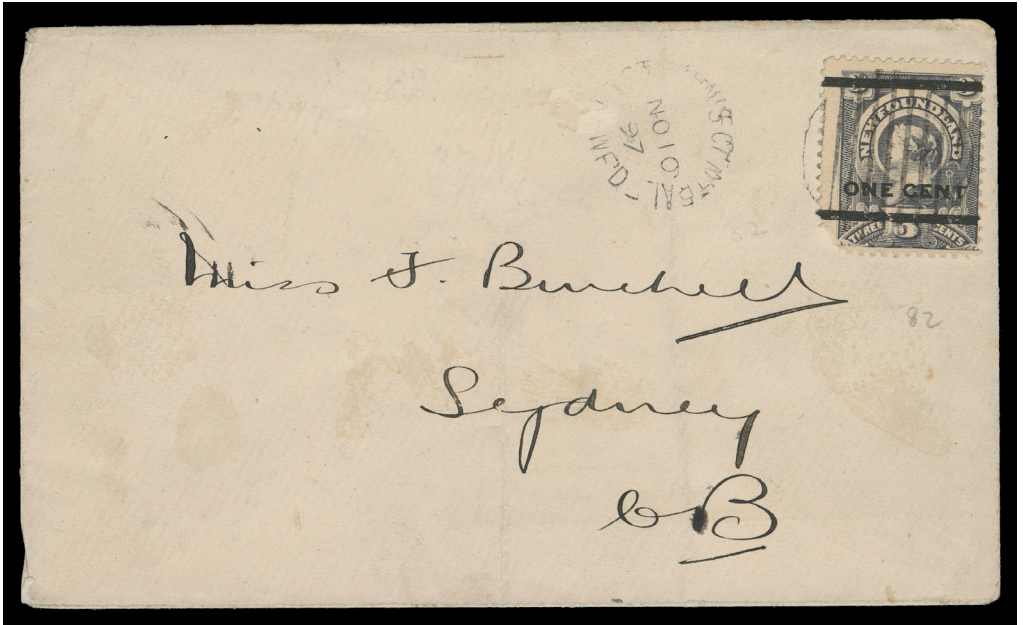 NEWFOUNDLAND
ONE CENT
THREE 3 CENTS
NO 10
97
Miss F. Burchell
82
Sydney
CB